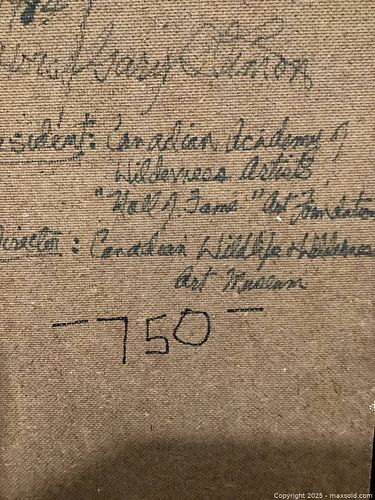 Gary
sident: Canadian Academy of
Wilderness Artists
"Hall of Fame" Art Foundation
Director: Canadian Wildlife & Wilderness
Art Museum
- 750 -
Copyright © 2025 - maxsold.com